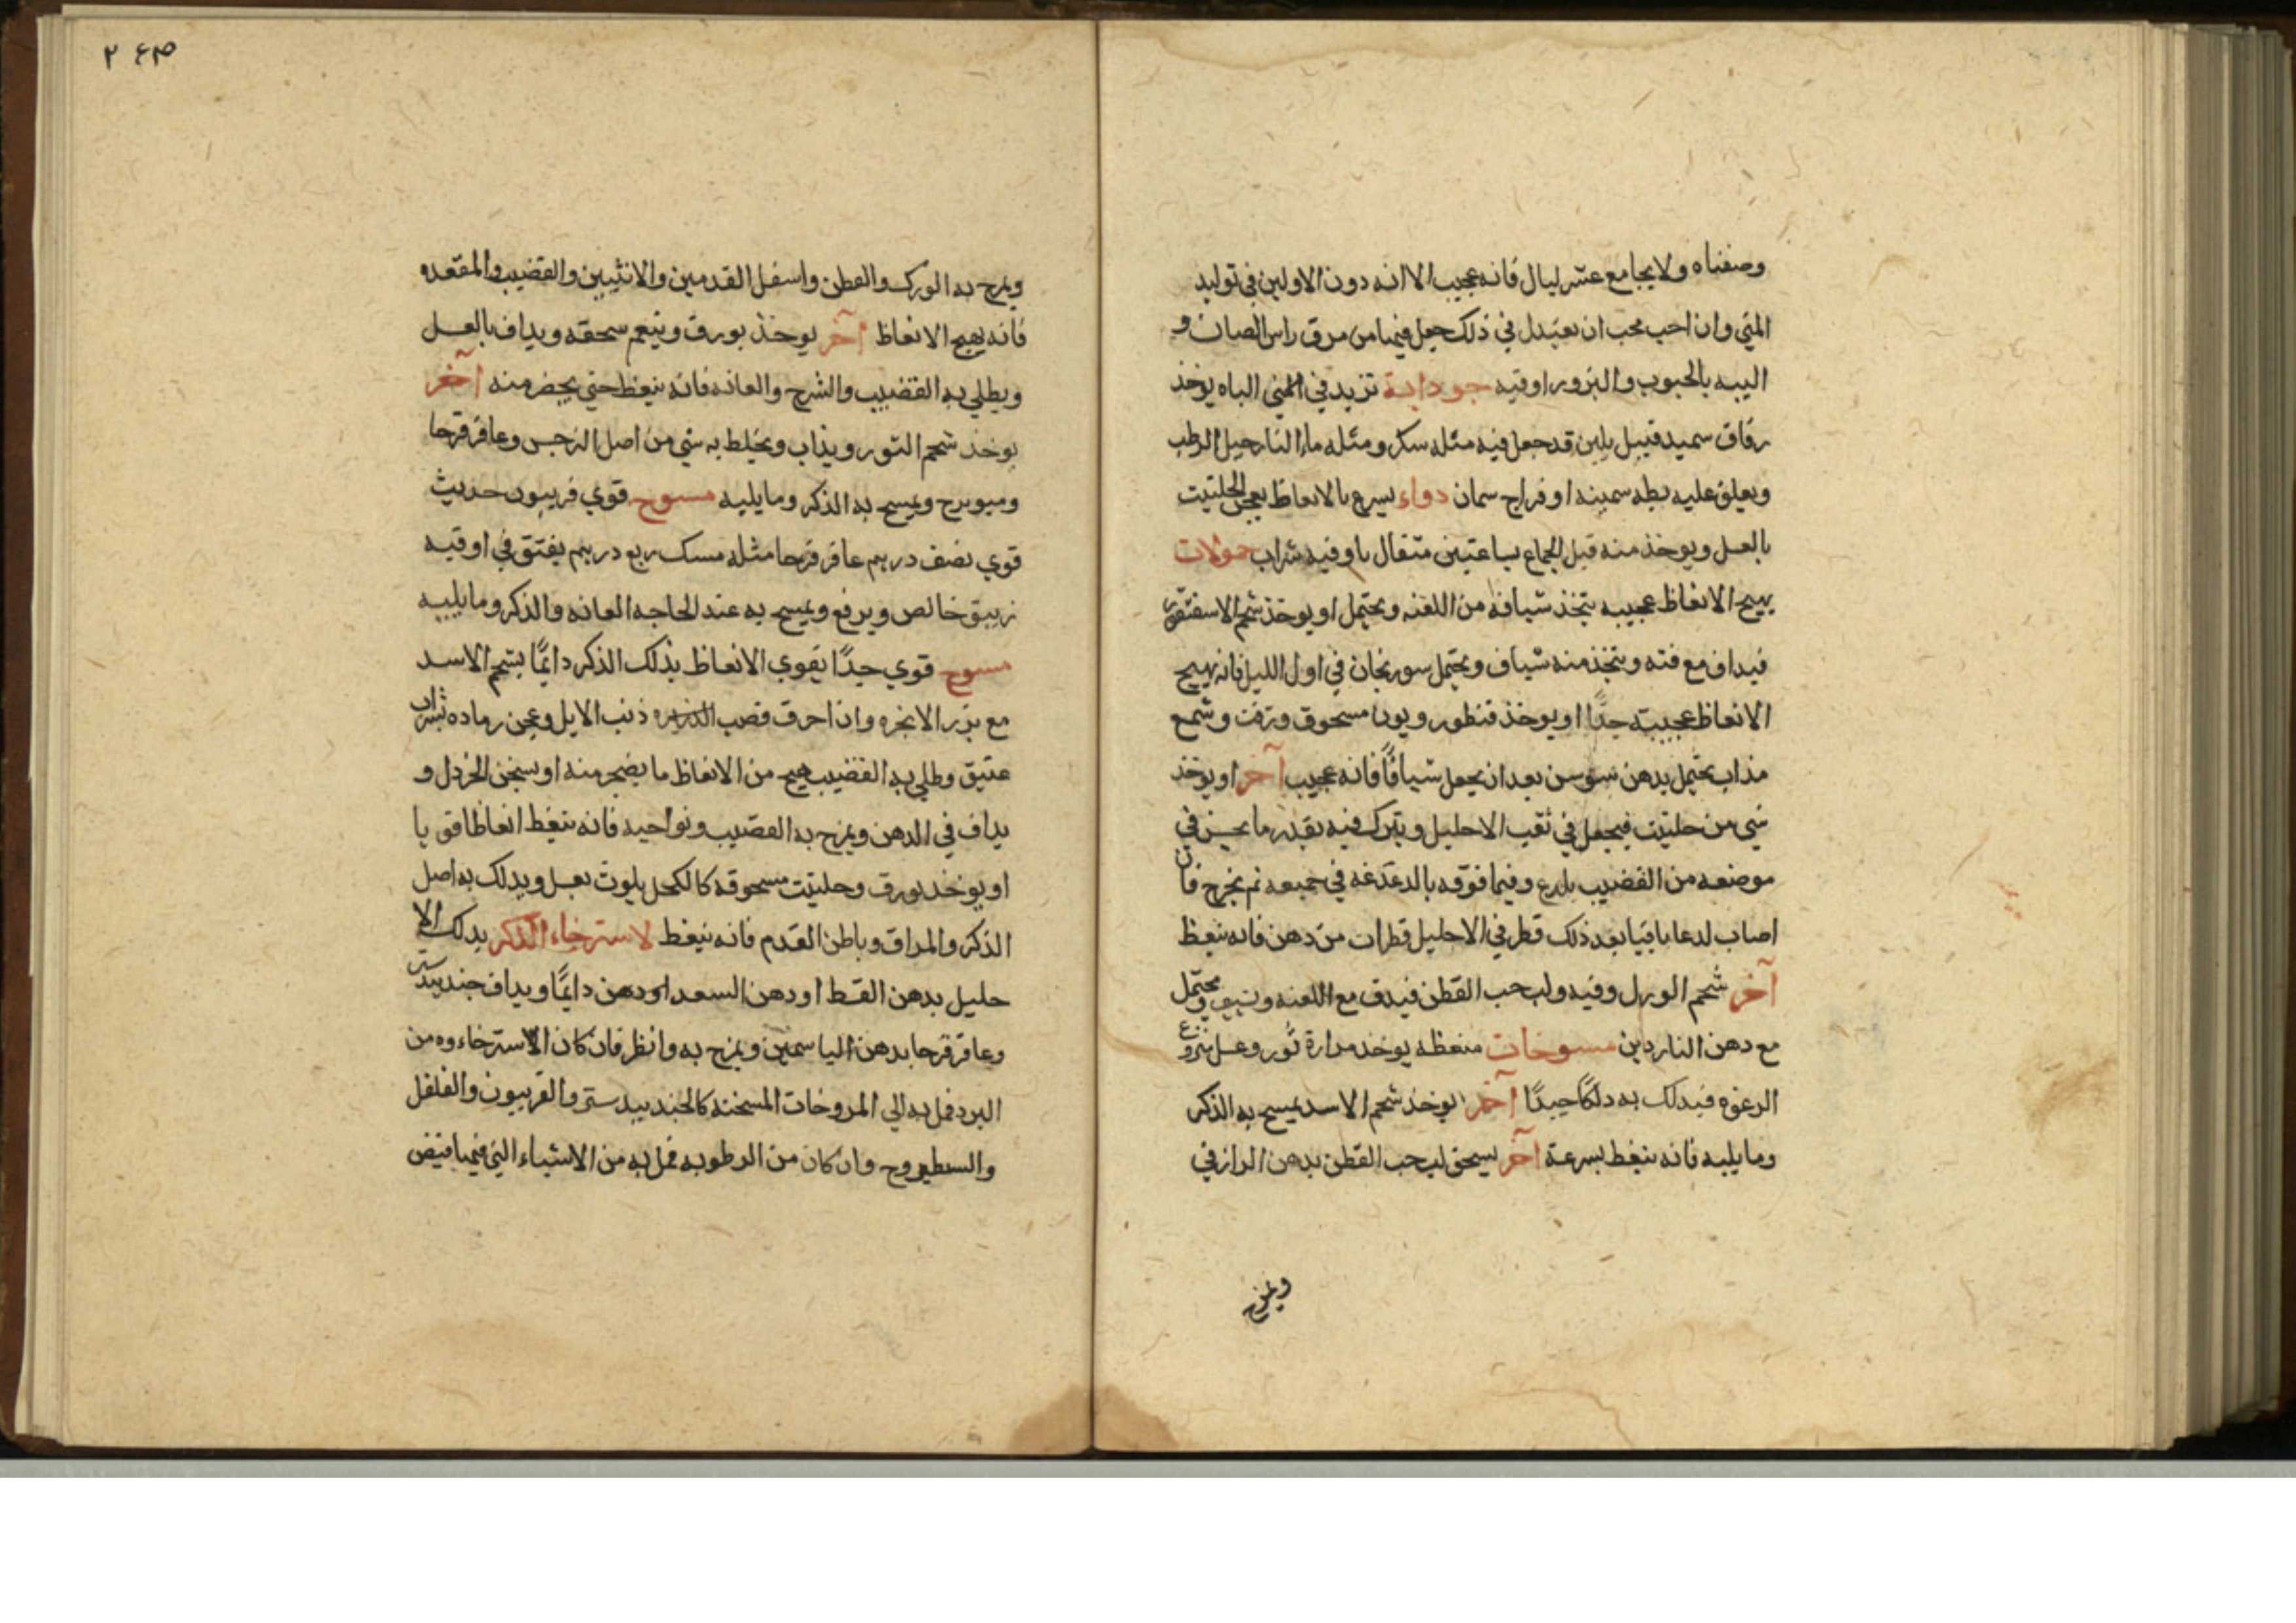 وصفناه ولا يجامع عشر ليال فانه عجيب الا انه دون الاولين في توليد
المني وان احب محب ان يعتدل في ذلك جعل فيها من مرق راس الضان و
اليبه بالحبوب والبزور اوقيه جودابة تزيد في المني الباه يوخذ
رقاق سميد فيبل بلبن قد جعل فيه مثله سكر ومثله ماء النارجيل الرطب
ويعلق عليه بطه سمينه او فراج سمان دواء يسرع بالانعاظ يعجن الحلتيت
بالعسل ويوخذ منه قبل الجماع بساعتين مثقال باوقيه شراب حمولات
يهيج الانعاظ عجيبه يتخذ شيافه من اللعنه ويحتمل او يوخذ شحم الاسقنقور
فيداف مع قنه ويتخذ منه شياف ويحتمل سورنجان في اول الليل فانه يهيج
الانعاظ عجيبته جدًا او يوخذ قنطوريون مسحوق وزفت وشمع
مذاب يحتمل بدهن سوسن بعد ان يجعل شيافًا فانه عجيب آخر او يوخذ
شي من حلتيت فيجعل في ثقب الاحليل ويترك فيه بقدر ما يحسن في
موضعه من القضيب بلدع وفيما فوقه بالدغدغه في جميعه ثم يخرج فان
اصاب لدعا باقيا بعد ذلك قطر في الاحليل قطرات من دهن فانه ينعظ
آخر شحم الورل وفيه ولب حب القطن فيدق مع اللعنه ويحتمل
مع دهن الناردين مسوخات منعظه يوخذ مرارة ثور وعسل منزوع
الرغوه فيدلك به دلكًا جيدًا آخر يوخذ شحم الاسد يمسح به الذكر
وما يليه فانه ينعظ بسرعة آخر يسحق لب حب القطن بدهن الرازقي
ويمزج
٢٤٣
ويمرخ به الورك والقطن واسفل القدمين والانثيين والقضيب والمقعده
فانه يهيج الانعاظ آخر يوخذ بورق وينعم سحقه ويداف بالعسل
ويطلي به القضيب والشرج والعانه فانه ينعظ حتي يضجر منه آخر
يوخذ شحم الثور ويذاب ويخلط به شي من اصل النرجس وعاقرقرحا
وميويزج ويمسح به الذكر وما يليه مسوح قوي فربيون حديث
قوي نصف درهم عاقرقرحا مثله مسك ربع درهم يفتق في اوقيه
زيبق خالص ويرفع ويمسح به عند الحاجه العانه والذكر وما يليه
مسوح قوي جدًا يقوي الانعاظ يدلك الذكر دايمًا بشحم الاسد
مع بزر الانجره وان احرق قصب الذريره ذنب الايل وعجن رماده بشراب
عتيق وطلي به القضيب هيج من الانعاظ ما يضجر منه او يسخن الخردل و
يداف في الدهن ويمزج به القضيب ونواحيه فانه ينعظ انعاظا قويا
او يوخذ بورق وحلتيت مسحوقه كالكحل يلوث بعسل ويدلك به اصل
الذكر والمراق وباطن القدم فانه ينعظ لاسترخاء الذكر يدلك الا
حليل بدهن القسط او دهن السعد او دهن دايمًا ويداف جندبيدستر
وعاقرقرحا بدهن الياسمين ويمزج به وانظر فان كان الاسترخاء وه من
البرد فمل به الي المروخات المسخنه كالجندبيدستر والفربيون والفلفل
والسطيروح وان كان من الرطوبه فمل به من الاشياء التي فيها قبض